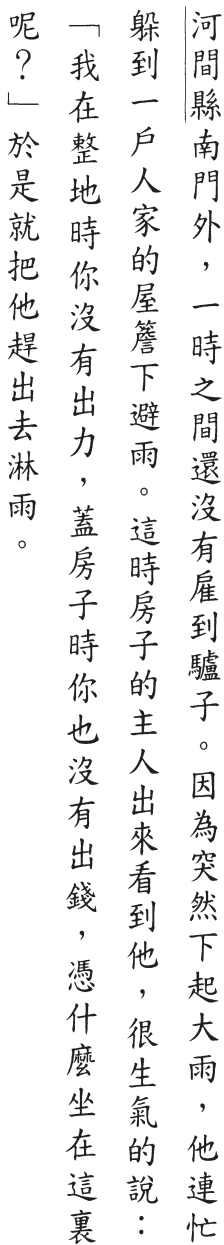 河間縣南門外，一時之間還沒有雇到驢子。因為突然下起大雨，他連忙
躲到一戶人家的屋簷下避雨。這時房子的主人出來看到他，很生氣的說：
「我在整地時你沒有出力，蓋房子時你也沒有出錢，憑什麼坐在這裏
呢？」於是就把他趕出去淋雨。